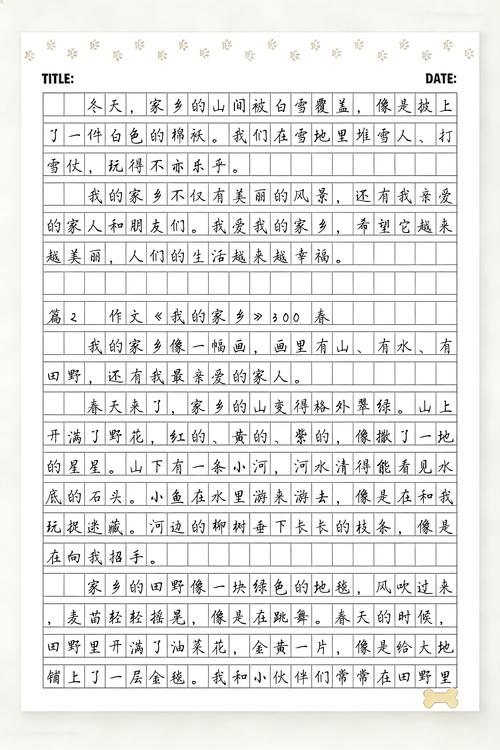 TITLE: DATE:
冬天，家乡的山间被白雪覆盖，像是披上
了一件白色的棉袄。我们在雪地里堆雪人、打
雪仗，玩得不亦乐乎。
我的家乡不仅有美丽的风景，还有我亲爱
的家人和朋友们。我爱我的家乡，希望它越来
越美丽，人们的生活越来越幸福。
篇2 作文《我的家乡》300 春
我的家乡像一幅画，画里有山、有水、有
田野，还有我最亲爱的家人。
春天来了，家乡的山变得格外翠绿。山上
开满了野花，红的、黄的、紫的，像撒了一地
的星星。山下有一条小河，河水清得能看见水
底的石头。小鱼在水里游来游去，像是在和我
玩捉迷藏。河边的柳树垂下长长的枝条，像是
在向我招手。
家乡的田野像一块绿色的地毯，风吹过来
，麦苗轻轻摇晃，像是在跳舞。春天的时候，
田野里开满了油菜花，金黄一片，像是给大地
铺上了一层金毯。我和小伙伴们常常在田野里